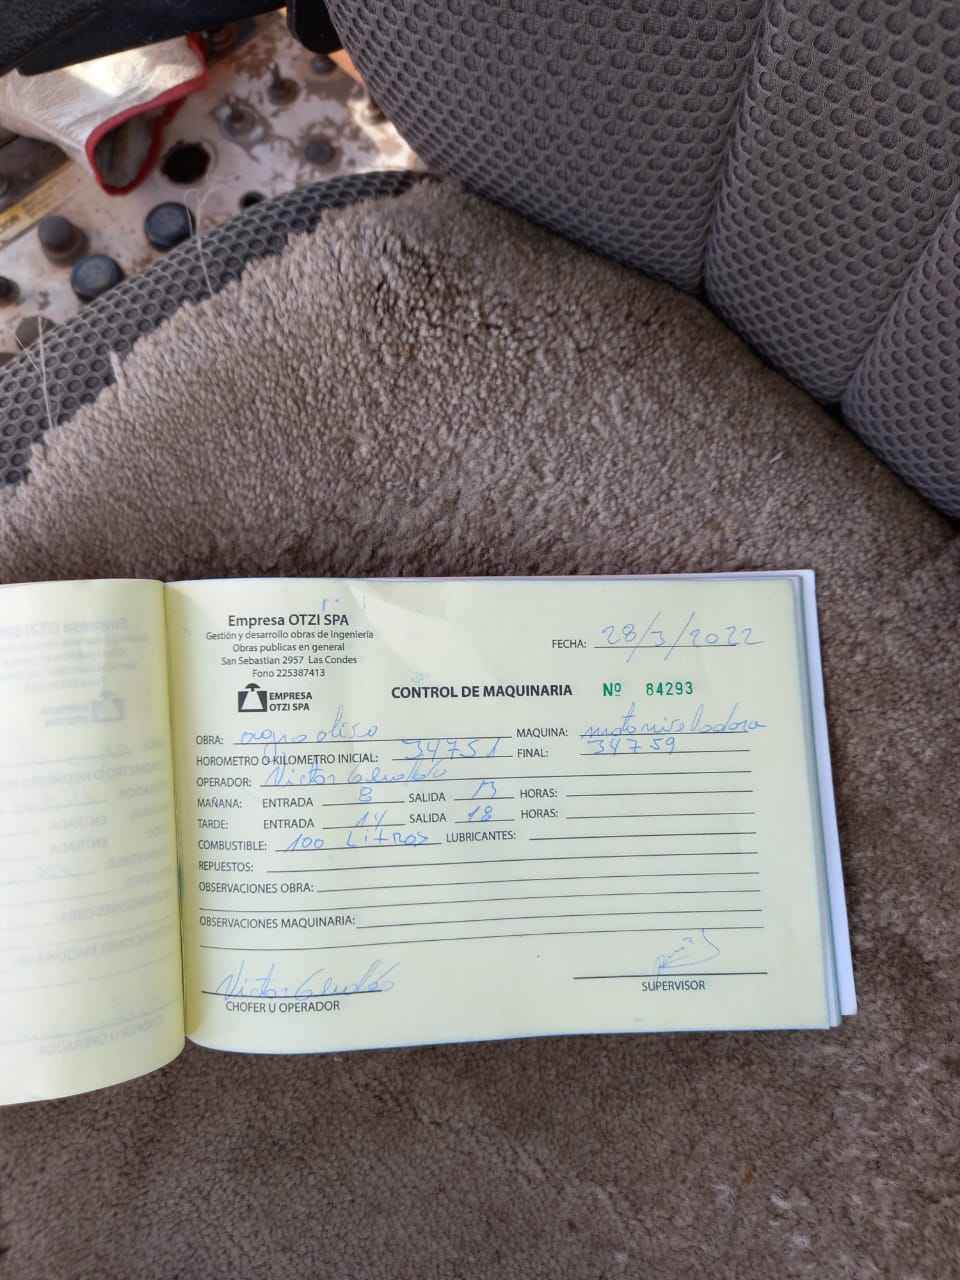 Empresa OTZI SPA
Gestión y desarrollo obras de Ingeniería
Obras publicas en general
San Sebastian 2957 Las Condes
Fono 225387413
EMPRESA
OTZI SPA
FECHA: 28/3/2022
CONTROL DE MAQUINARIA Nº 84293
OBRA: MAQUINA: motoniveladora
HOROMETRO O KILOMETRO INICIAL: 34751 FINAL: 34759
OPERADOR: Victor
MAÑANA: ENTRADA 8 SALIDA 13 HORAS:
TARDE: ENTRADA 14 SALIDA 18 HORAS:
COMBUSTIBLE: 100 Litros LUBRICANTES:
REPUESTOS:
OBSERVACIONES OBRA:
OBSERVACIONES MAQUINARIA:
Victor
CHOFER U OPERADOR
SUPERVISOR